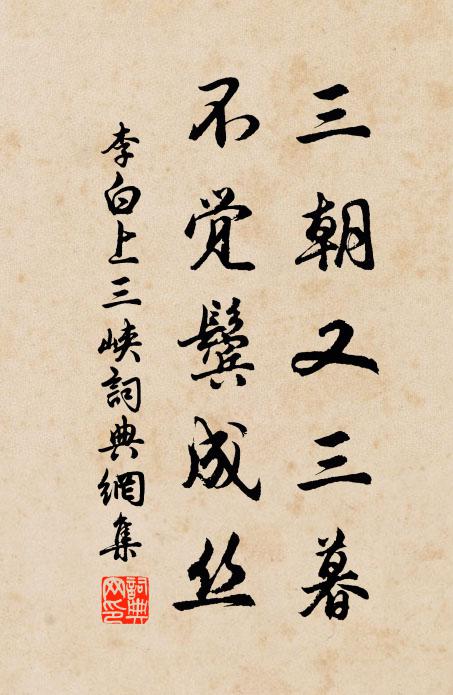 三朝又三暮
不觉鬓成丝
李白上三峡詞典網集
詞典網印